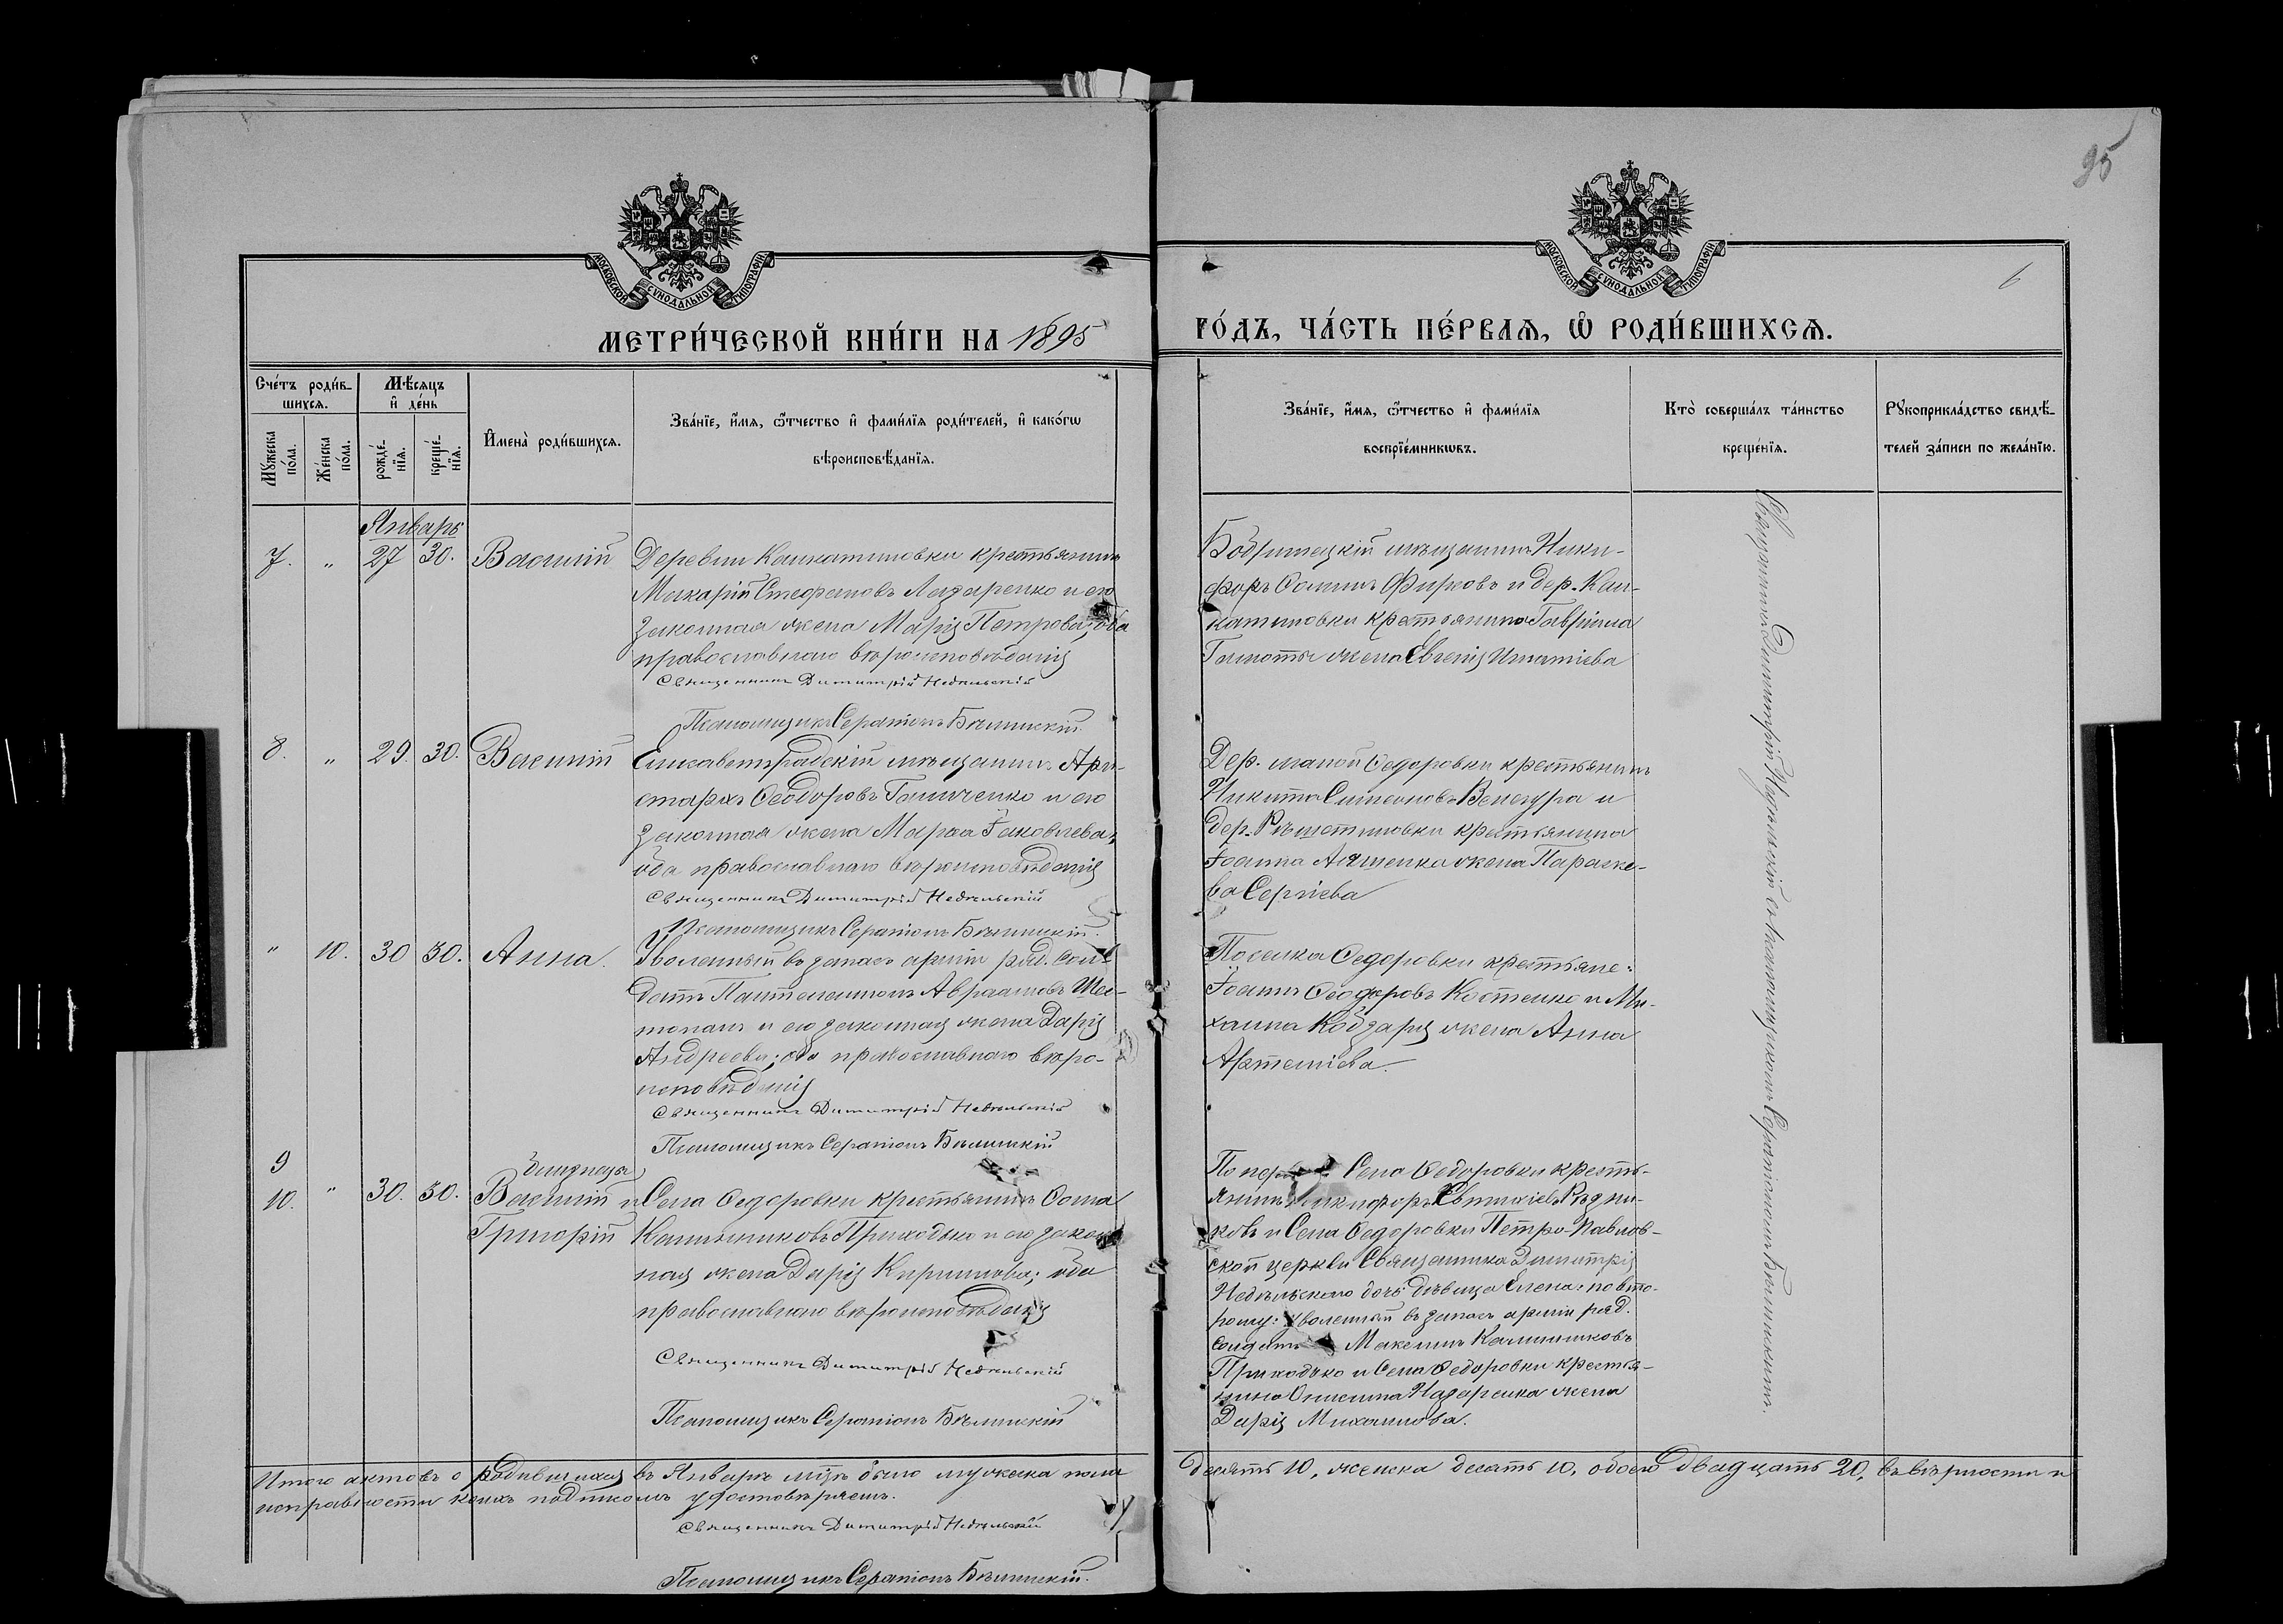 95
6
МОСКОВСКОЙ СѴНОДАЛЬНОЙ ТИПОГРАФІИ
МОСКОВСКОЙ СѴНОДАЛЬНОЙ ТИПОГРАФІИ
МЕТРИ́ЧЕСКОЙ КНИ́ГИ НА 1895
ГО́ДЪ, ЧА́СТЬ ПЕ́РВАЯ, Ѡ РОДИ́ВШИХСЯ.
Сче́тъ роди́в-
шихся.
Мѣ́сяцъ
и҆ де́нь
Мꙋ́жеска
по́ла.
Же́нска
по́ла.
рожде́-
нїя.
креще́-
нїя.
И҆мена̀ роди́вшихся.
Зва́нїе, и҆́мя, ѻ҆́тчество и҆ фами́лїя роди́телей, и҆ како́гѡ
вѣроисповѣ́данїя.
Зва́нїе, и҆́мя, ѻ҆́тчество и҆ фами́лїя
воспрїе́мникѡвъ.
Кто̀ соверша́лъ та́инство
креще́нїя.
Рꙋкоприкла́дство свидѣ́-
телей за́писи по жела́нїю.
Январь
7. " 27 30. Василій
Деревни Камкатиновки крестьянинъ
Макарій Стефановъ Лазаренко и его
законная жена Марія Петрова; оба
православнаго вѣроисповѣданія
Священникъ Димитрій Недѣльскій
Псаломщикъ Серапіонъ Бѣлинскій.
Бобринецкій мѣщанинъ Ники-
форъ Фирковъ и дер. Кам-
катиновки крестьянина Гавріила
жена Евгенія Игнатіева
8. " 29. 30. Василій
Елисаветградскій мѣщанинъ Ари-
стархъ Ѳеодоровъ Ганиченко и его
законная жена Марѳа Іаковлева;
оба православнаго вѣроисповѣданія
Священникъ Димитрій Недѣльскій
Псаломщикъ Серапіонъ Бѣлинскій.
Дер. малой Ѳедоровки крестьянинъ
Никита Симеоновъ Венгура и
дер. Рѣшетиловки крестьянина
Іоанна жена Параске-
ва Сергіева
" 10. 30 30. Анна.
Уволенный въ запасъ арміи ряд. сол-
датъ Пантелеимонъ Авраамовъ Ше-
и его законная жена Дарія
Андреева; оба православнаго вѣро-
исповѣданія
Священникъ Димитрій Недѣльскій
Псаломщикъ Серапіонъ Бѣлинскій
Поселка Ѳедоровки крестьяне:
Іоаннъ Ѳеодоровъ Костенко и Ми-
хаила Кобзаря жена Анна
Артеміева.
9
10. " 30. 30.
близнецы
Василій и
Григорій
Села Ѳедоровки крестьянинъ Ѳома
Калинниковъ Приходько и его закон-
ная жена Дарія Кириллова; оба
православнаго вѣроисповѣданія
Священникъ Димитрій Недѣльскій
Псаломщикъ Серапіонъ Бѣлинскій
По Села Ѳедоровки кресть-
янинъ Никифоръ Евтихіевъ Рѣзни-
ковъ и Села Ѳедоровки Петро-Павлов-
ской церкви Священника Димитрія
Недѣльскаго дочь дѣвица Елена; по вто-
рому: Уволенный въ запасъ арміи ряд.
солдатъ Максимъ Калинниковъ
Приходько и Села Ѳедоровки крестья-
нина Онисима Назаренка жена
Дарія Михаилова.
Священникъ Димитрій Недѣльскій съ псаломщикомъ Серапіономъ Бѣлинскимъ.
Итого актовъ о родившихся въ Январѣ мцѣ было мужеска пола десять 10, женска десять 10, обоего двадцать 20, въ вѣрности и
исправности коихъ подписомъ удостовѣряемъ.
Священникъ Димитрій Недѣльскій
Псаломщикъ Серапіонъ Бѣлинскій.